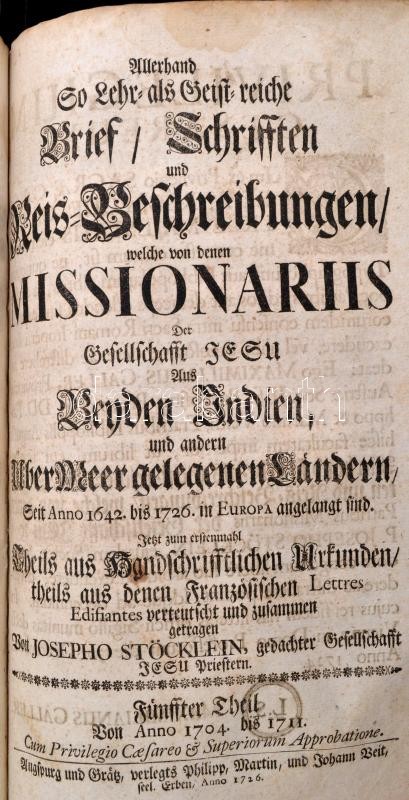 Allerhand
So Lehr- als Geist-reiche
Brief / Schrifften
und
Reis-Beschreibungen /
welche von denen
MISSIONARIIS
Der
Gesellschafft JESU
Aus
Beyden Indien,
und andern
Uber Meer gelegenen Ländern /
Seit Anno 1642. bis 1726. in EUROPA angelangt sind.
Jetzt zum erstenmahl
Theils aus Handschrifftlichen Urkunden /
theils aus denen Französischen Lettres
Edifiantes verteutscht und zusammen
getragen
Von JOSEPHO STÖCKLEIN, gedachter Gesellschafft
JESU Priestern.
Fünffter Theil
Von Anno 1704. bis 1711.
Cum Privilegio Cæsareo & Superiorum Approbatione.
Augspurg und Grätz, verlegts Philipp, Martin, und Johann Veit,
seel. Erben, Anno 1726.